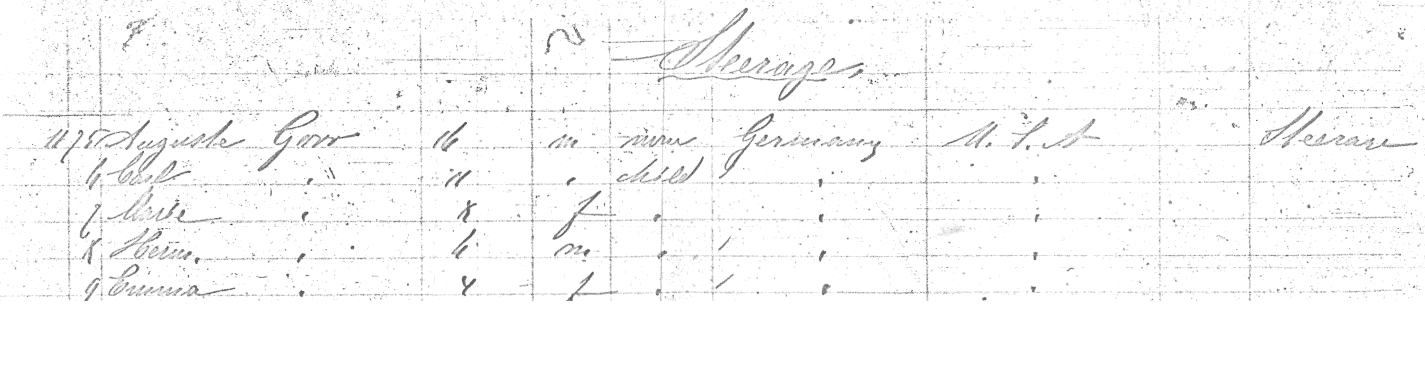 Steerage.
1175 Auguste Gorr 16 m none Germany U. S. A Steerage
6 Carl " 11 " child " " "
7 Marie " 8 f " " "
8 Herm. " 6 m " " " "
9 Emma " 4 f " " " "